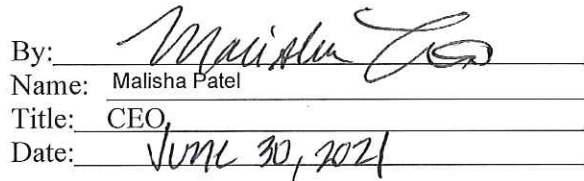 By: Malisha
Name: Malisha Patel
Title: CEO
Date: June 30, 2021